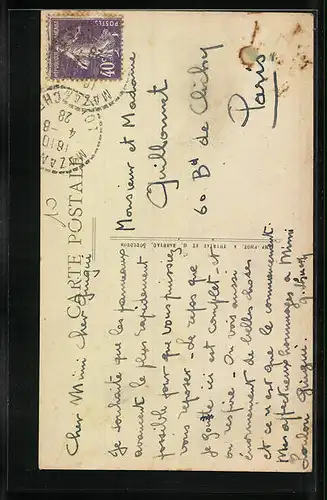 CARTE POSTALE
POSTES
40c
16 10
4 -8
28
10
Monsieur et Madame
Guillonnet
60 Bd de Clichy
Paris
Cher Mimi Cher Guigui
Je souhaite que les panneaux
avancent le plus rapidement
possible pour que vous puissiez
vous reposer - le repos que
je goûte ici est complet - et
on respire - On voit aussi
énormément de belles choses
et ce n'est que le commencement.
Mes affectueux hommages à Mimi